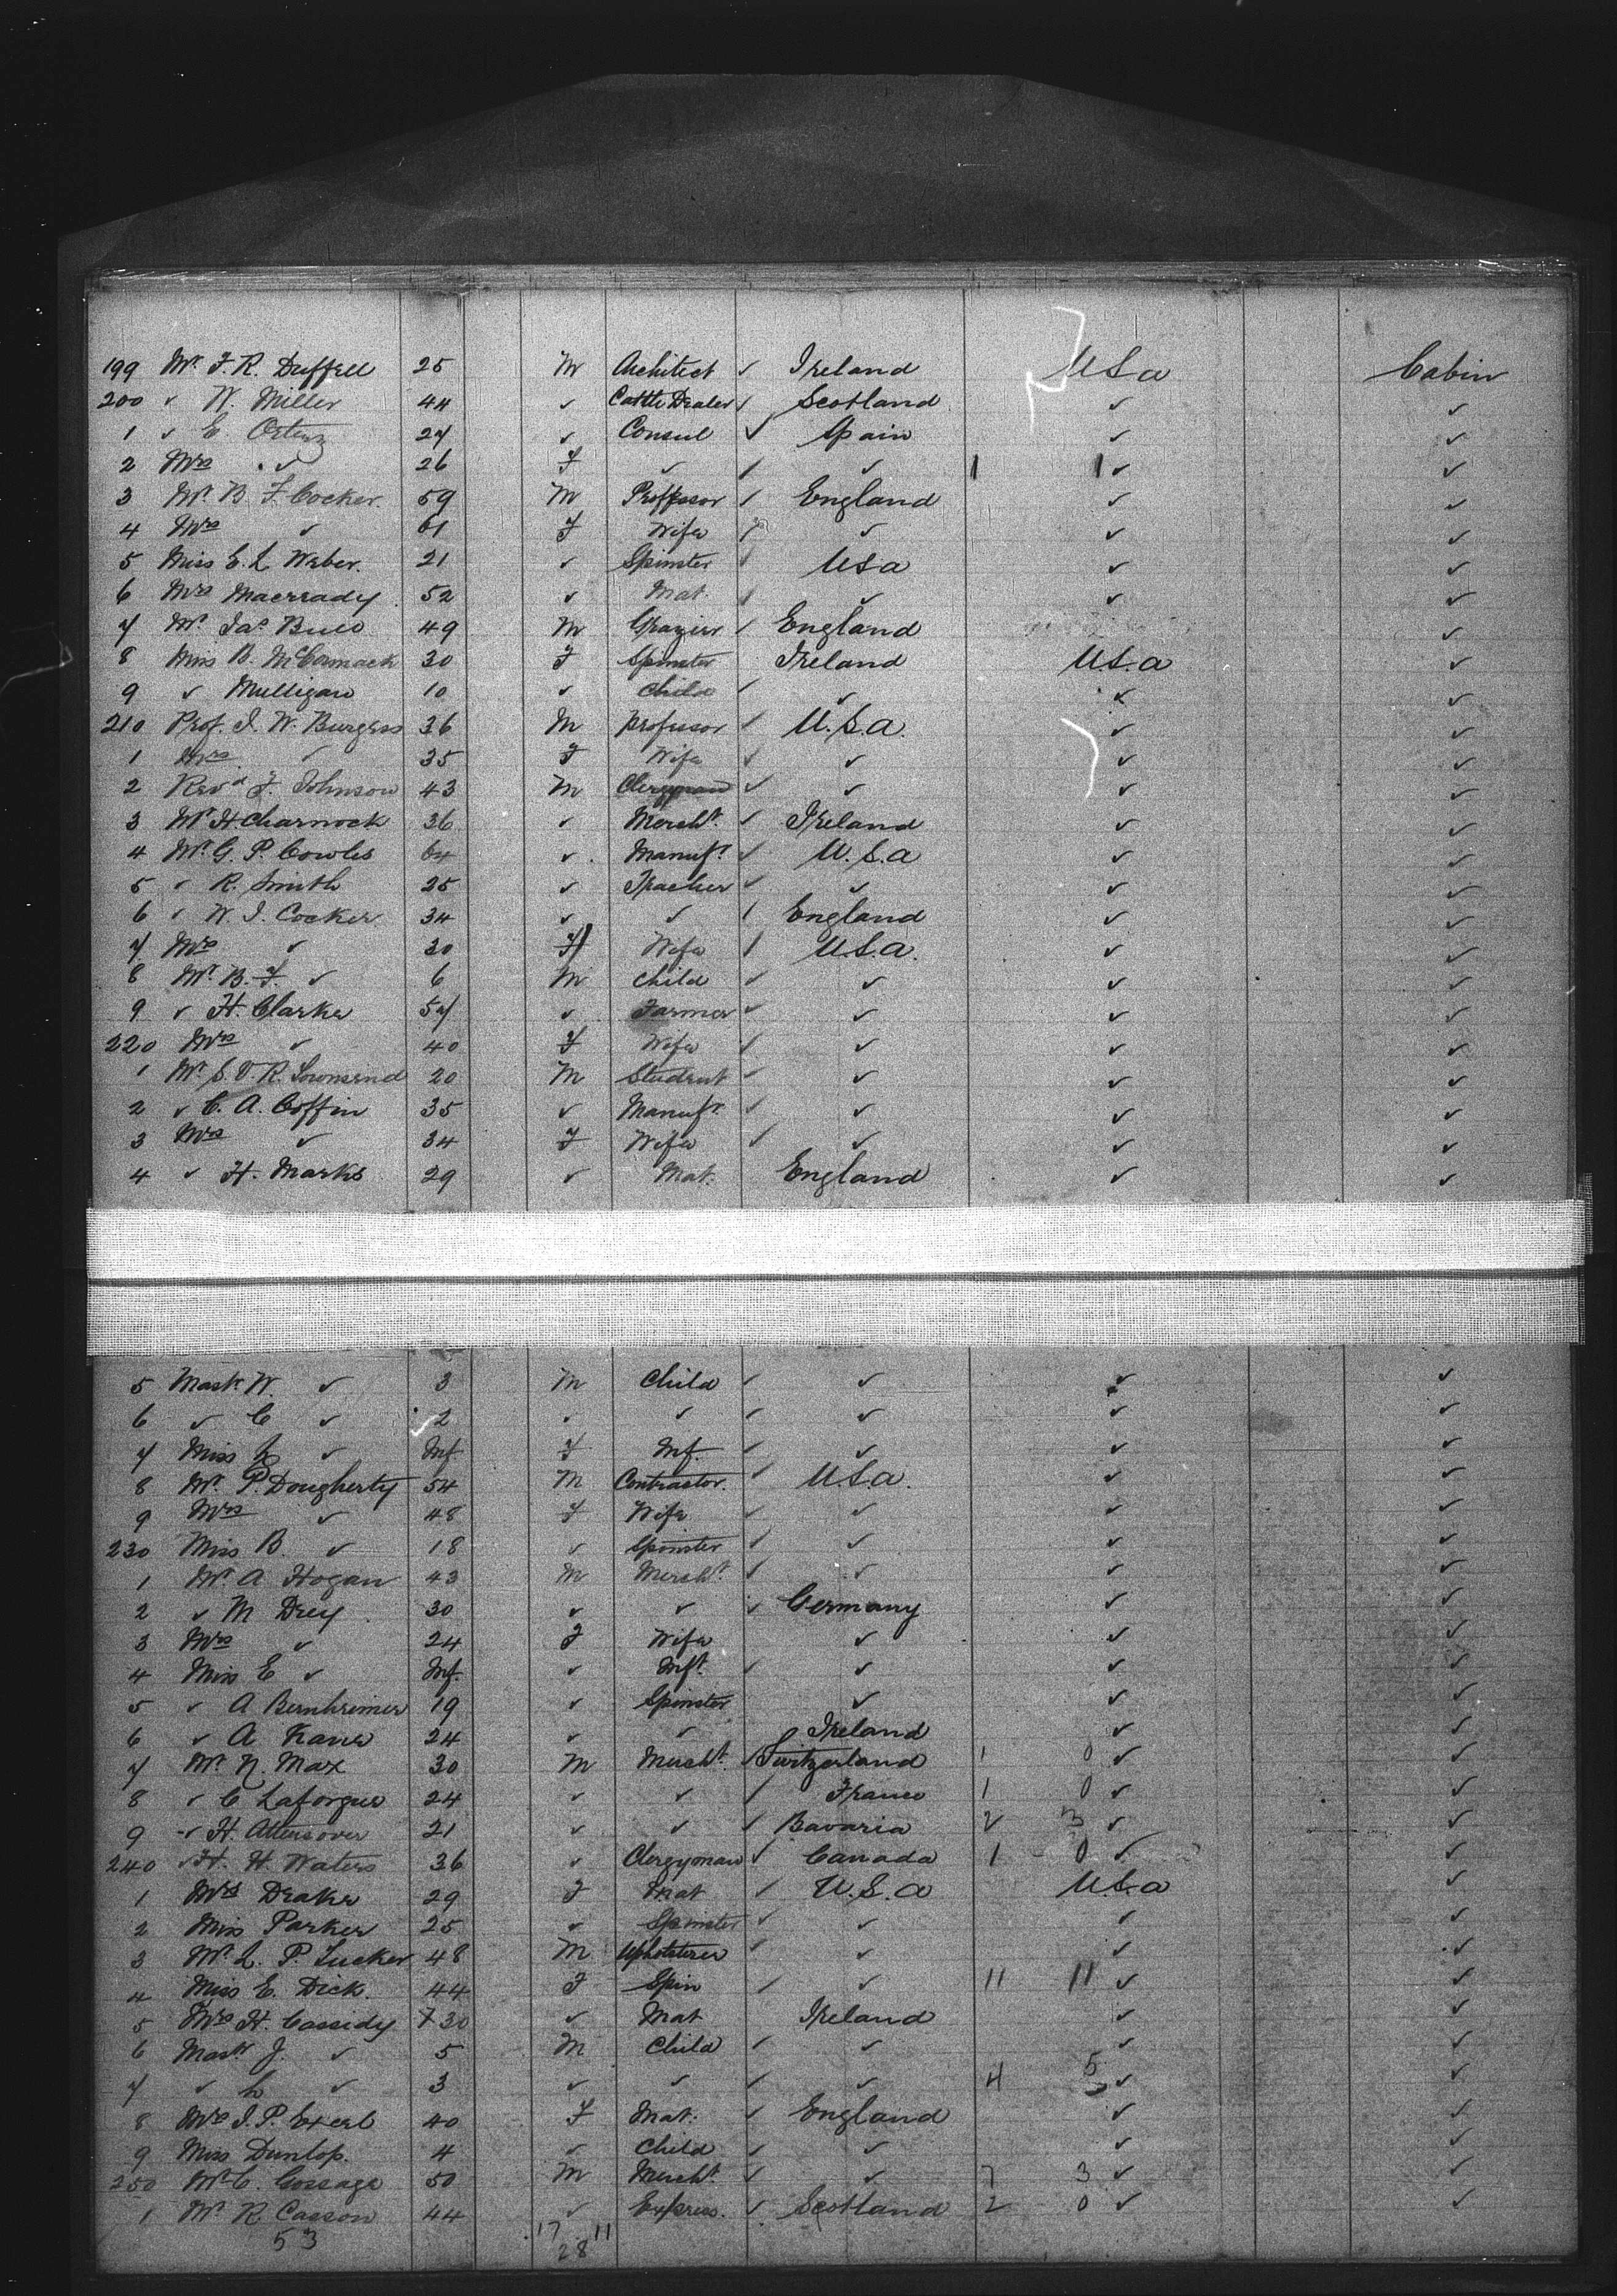 199 Mr. F. R. Duffell 25 M Architect ✓ Ireland USa Cabin
200 ✓ W. Miller 44 ✓ Cattle Dealer ✓ Scotland ✓ ✓
1 ✓ E. 27 ✓ Consul ✓ Spain ✓ ✓
2 Mrs ✓ 26 F ✓ / ✓ 1 1 ✓ ✓
3 Mr. B. F. Cocker. 59 M Professor / England ✓ ✓
4 Mrs ✓ 61 F Wife / ✓ ✓ ✓
5 Miss E. L. Weber. 21 ✓ Spinster / USa ✓ ✓
6 Mrs Macready 52 ✓ Mat. / ✓ ✓ ✓
7 Mr. Jas. 49 M Grazier / England ✓
8 Miss B. McCormack 30 F Spinster Ireland U.S.a ✓
9 ✓ Mulligan 10 ✓ Child ✓ ✓ ✓ ✓
210 Prof. J. W. Burgess 36 M Professor ✓ U.S.a. ✓ ✓
1 Mrs ✓ 35 F Wife ✓ ✓ ✓ ✓
2 Revd. F. Johnson 43 M Clergyman ✓ ✓ ✓ ✓
3 Mr H Charnock 36 ✓ Mercht. ✓ Ireland ✓ ✓
4 Mr. G. P. Cowles 64 ✓ Manufr. ✓ U.S.a ✓ ✓
5 ✓ R. Smith 25 ✓ Teacher ✓ ✓ ✓ ✓
6 ✓ W. J. Cocker 34 ✓ ✓ / England ✓ ✓
7 Mrs ✓ 30 F Wife / U.S.a. ✓ ✓
8 Mr. B. F. ✓ 6 M Child ✓ ✓ ✓ ✓
9 ✓ H. Clarke 57 ✓ Farmer ✓ ✓ ✓ ✓
220 Mrs ✓ 40 F Wife ✓ ✓ ✓ ✓
1 Mr. S. V. R. Townsend 20 M Student ✓ ✓ ✓ ✓
2 ✓ C. A. Coffin 35 ✓ Manufr. ✓ ✓ ✓ ✓
3 Mrs ✓ 34 F Wife ✓ ✓ ✓ ✓
4 ✓ H. Marks 29 ✓ Mat. England ✓ ✓
5 Mastr W. ✓ 3 M Child ✓ ✓ ✓ ✓
6 ✓ C ✓ 2 ✓ ✓ ✓ ✓ ✓ ✓
7 Miss ✓ Inf F Inf. ✓ ✓ ✓ ✓
8 Mr. P. Dougherty 54 M Contractor. ✓ U.S.a. ✓ ✓
9 Mrs ✓ 48 F Wife ✓ ✓ ✓ ✓
230 Miss B. ✓ 18 ✓ Spinster ✓ ✓ ✓ ✓
1 Mr. A Hogan 43 M Mercht. ✓ ✓ ✓ ✓
2 ✓ M Drey 30 ✓ ✓ ✓ Germany ✓ ✓
3 Mrs ✓ 24 F Wife ✓ ✓ ✓
4 Miss E ✓ Inf. ✓ Inft. ✓ ✓ ✓ ✓
5 ✓ A Bernheimer 19 ✓ Spinster ✓ ✓ ✓
6 ✓ A Kane 24 ✓ ✓ Ireland ✓ ✓
7 Mr. N. Max 30 M Mercht. ✓ Switzerland 1 0 ✓ ✓
8 ✓ C Laforgue 24 ✓ ✓ / France 1 0 ✓ ✓
9 ✓ H. 21 ✓ ✓ ✓ Bavaria 2 3 ✓ ✓
240 ✓ H. H. Waters 36 ✓ Clergyman ✓ Canada 1 0 ✓ ✓
1 Mrs Drake 29 F Mat ✓ U.S.a U.S.a ✓
2 Miss Parker 25 ✓ Spinster ✓ ✓ ✓ ✓
3 Mr. L. P. Tucker 48 M Upholsterer ✓ ✓ ✓ ✓
4 Miss E. Dick. 44 F Spin / ✓ 11 11 ✓ ✓
5 Mrs H. Cassidy 30 ✓ Mat Ireland ✓ ✓
6 Mastr J. ✓ 5 M Child ✓ ✓ ✓ ✓
7 ✓ ✓ 3 ✓ ✓ ✓ ✓ 4 5 ✓ ✓
8 Mrs J. P. 40 F Mat. ✓ England ✓ ✓
9 Miss Dunlop. 4 ✓ Child ✓ ✓ ✓ ✓
250 Mr. C. Gossage 50 M Mercht. ✓ ✓ 7 3 ✓ ✓
1 Mr. R. Casson 44 ✓ Express. ✓ Scotland 2 0 ✓ ✓
53 17 11
28